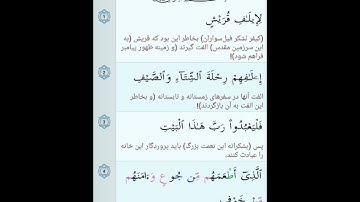 لِإِيلَٰفِ قُرَيْشٍ
(کیفر لشکر فیل‌سواران) بخاطر این بود که قریش (به
این سرزمین مقدس) الفت گیرند (و زمینه ظهور پیامبر
فراهم شود)!
إِۦلَٰفِهِمْ رِحْلَةَ ٱلشِّتَآءِ وَٱلصَّيْفِ
الفت آنها در سفرهای زمستانه و تابستانه (و بخاطر
این الفت به آن بازگردند)!
فَلْيَعْبُدُوا۟ رَبَّ هَٰذَا ٱلْبَيْتِ
پس (بشکرانه این نعمت بزرگ) باید پروردگار این خانه
را عبادت کنند،
ٱلَّذِىٓ أَطْعَمَهُم مِّن جُوعٍ وَءَامَنَهُم
مِّنْ خَوْفٍۭ